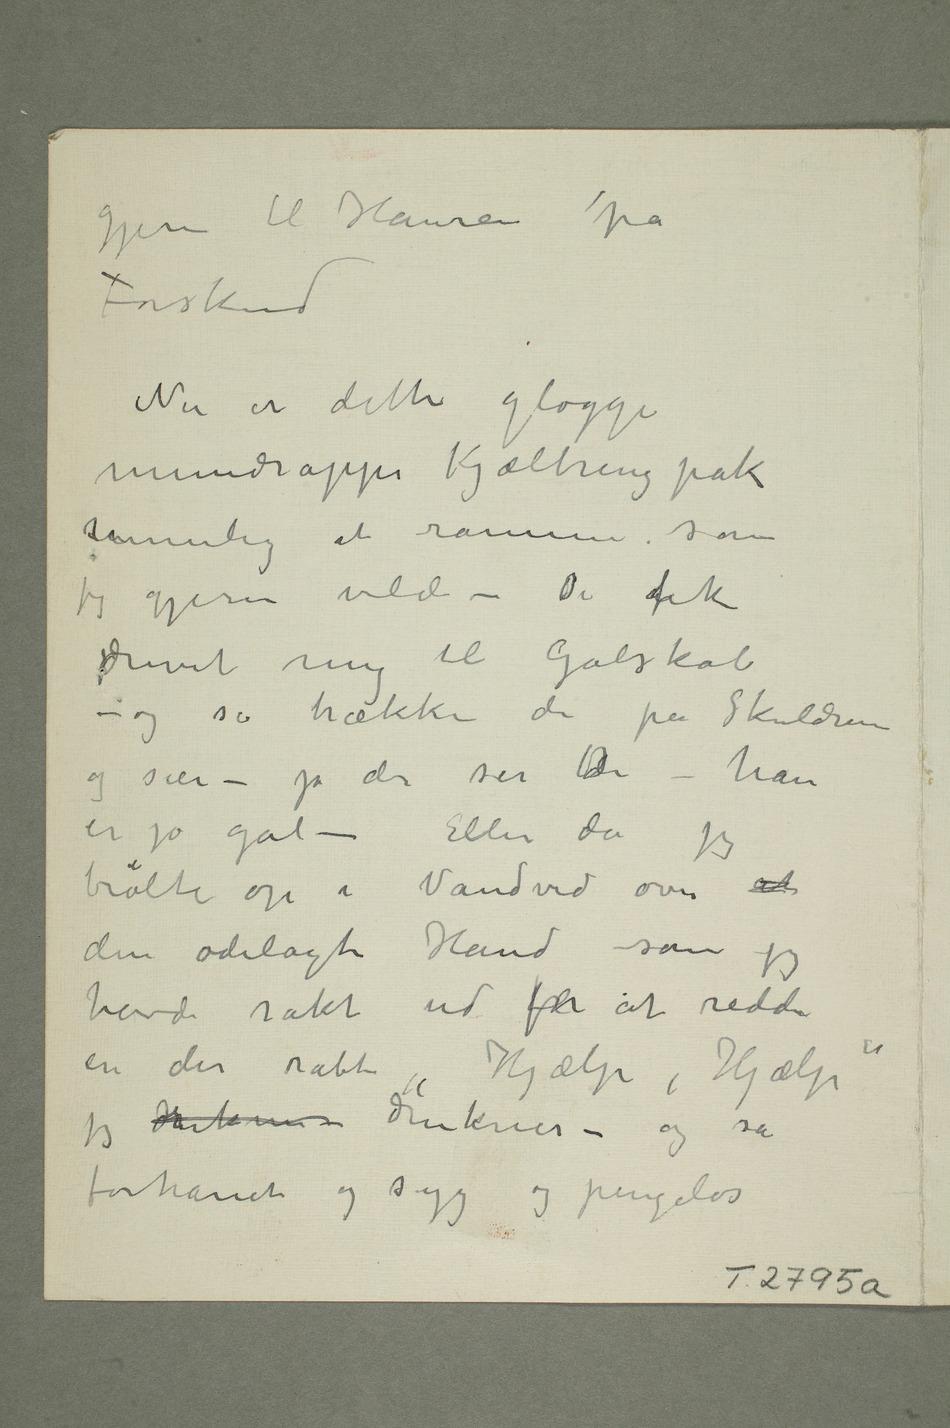 gjerne til Hansen på
Forskud
Nu er dette glogge
mundrappe Kjæltringpak
umulig at ramme som
jeg gjerne vilde – De fik
drevet mig til Galskab
– og så trækker de på Skuldrene
og sier – ja der ser De – han
er jo gal – Eller da jeg
brølte op i Vandvid over at
den ødelagte Hånd som jeg
havde rakt ud for at redde
en der råbte „Hjælp, Hjælp"
jeg drukner – og så
forhånet og syg og pengeløs
T. 2795a